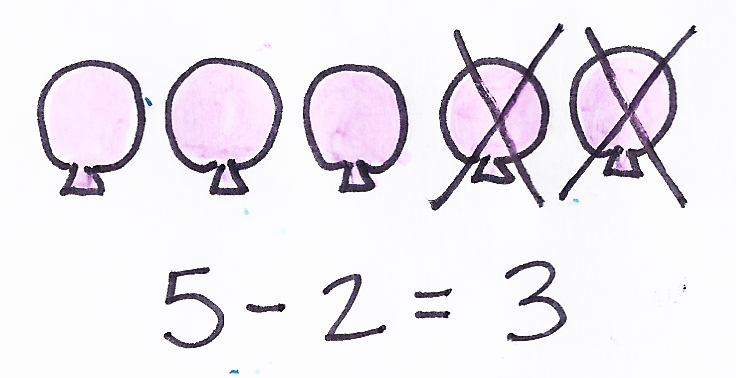 5 - 2 = 3